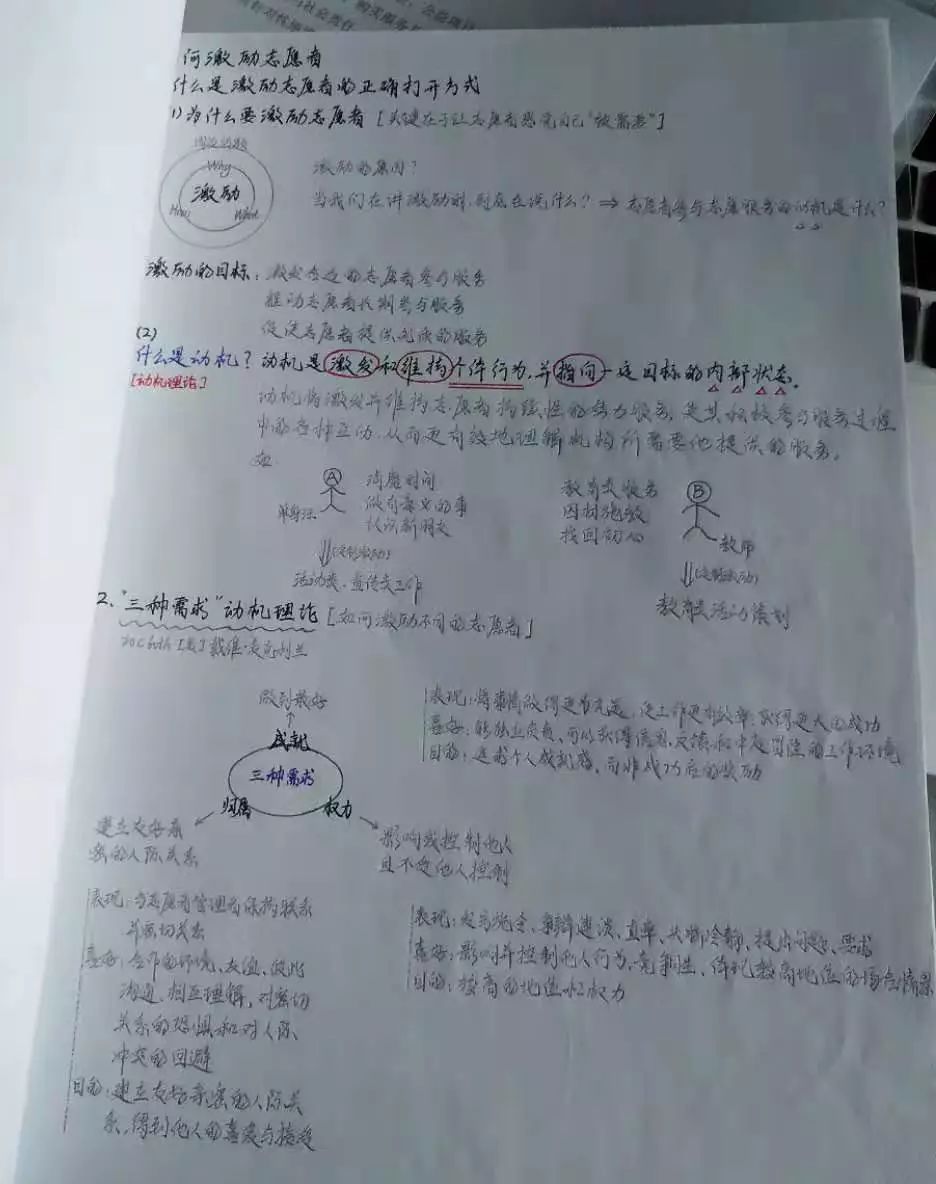 何激励志愿者
什么是激励志愿者的正确打开方式
1)为什么要激励志愿者 [关键在于让志愿者感觉自己"被需要"]
Why
激励
How What
激励的原因?
当我们在讲激励时,到底在说什么? ⇒ 志愿者参与志愿服务的动机是什么?
激励的目标: 激发合适的志愿者参与服务
推动志愿者长期参与服务
促使志愿者提供优质的服务
(2)
什么是动机? 动机是激发和维持个体行为,并指向一定目标的内部状态。
[动机理论]
动机能激发并维持志愿者持续性的努力服务,是其积极参与服务过程
中的各种互动,从而更有效地理解机构所需要他提供的服务。
如
A 消磨时间
做有意义的事
认识新朋友
单身汉
(定制激励)
活动类、宣传类工作
教育类服务
因材施教
找回初心
B
教师
(定制激励)
教育类活动策划
2. "三种需求"动机理论 [如何激励不同的志愿者]
20C 60th [美] 戴维·麦克利兰
做到最好
成就
三种需求
归属 权力
表现: 将事情做得更为完美,使工作更有效率,获得更大的成功
喜好: 能独立负责、可以获得信息反馈和中度冒险的工作环境
目的: 追求个人成就感,而非成功后的奖励
建立友好亲
密的人际关系
影响或控制他人
且不受他人控制
表现: 与志愿者管理者保持联系
并密切关系
喜好: 合作的环境、友谊、彼此
沟通、相互理解,对密切
关系的恐惧和对人际
冲突的回避
目的: 建立友好亲密的人际关
系,得到他人的喜爱与接受
表现: 发号施令、喜辩健谈、直率、头脑冷静、提出问题、要求
喜好: 影响并控制他人行为、竞争性、体现较高地位的场合情景
目的: 较高的地位和权力